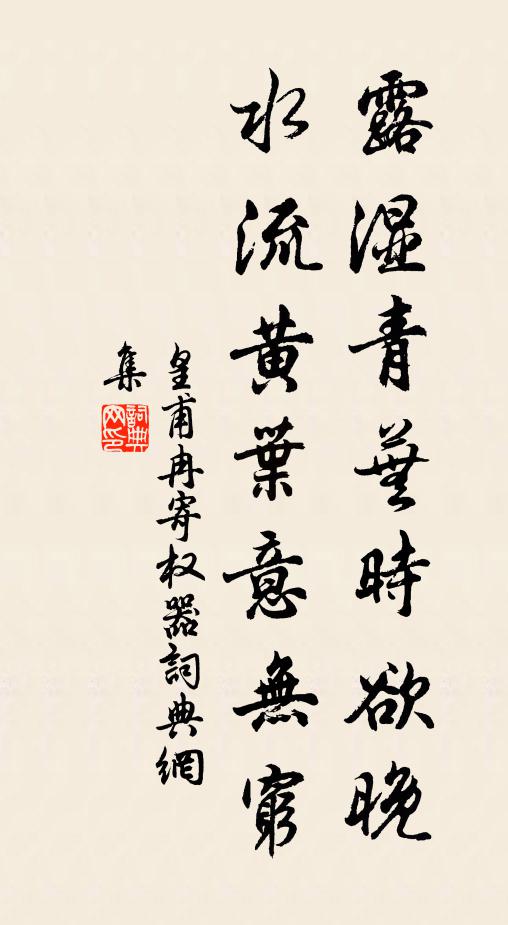 露濕青蕪時欲晚
水流黃葉意無窮
皇甫冉寄权器詞典網
集
詞典網印